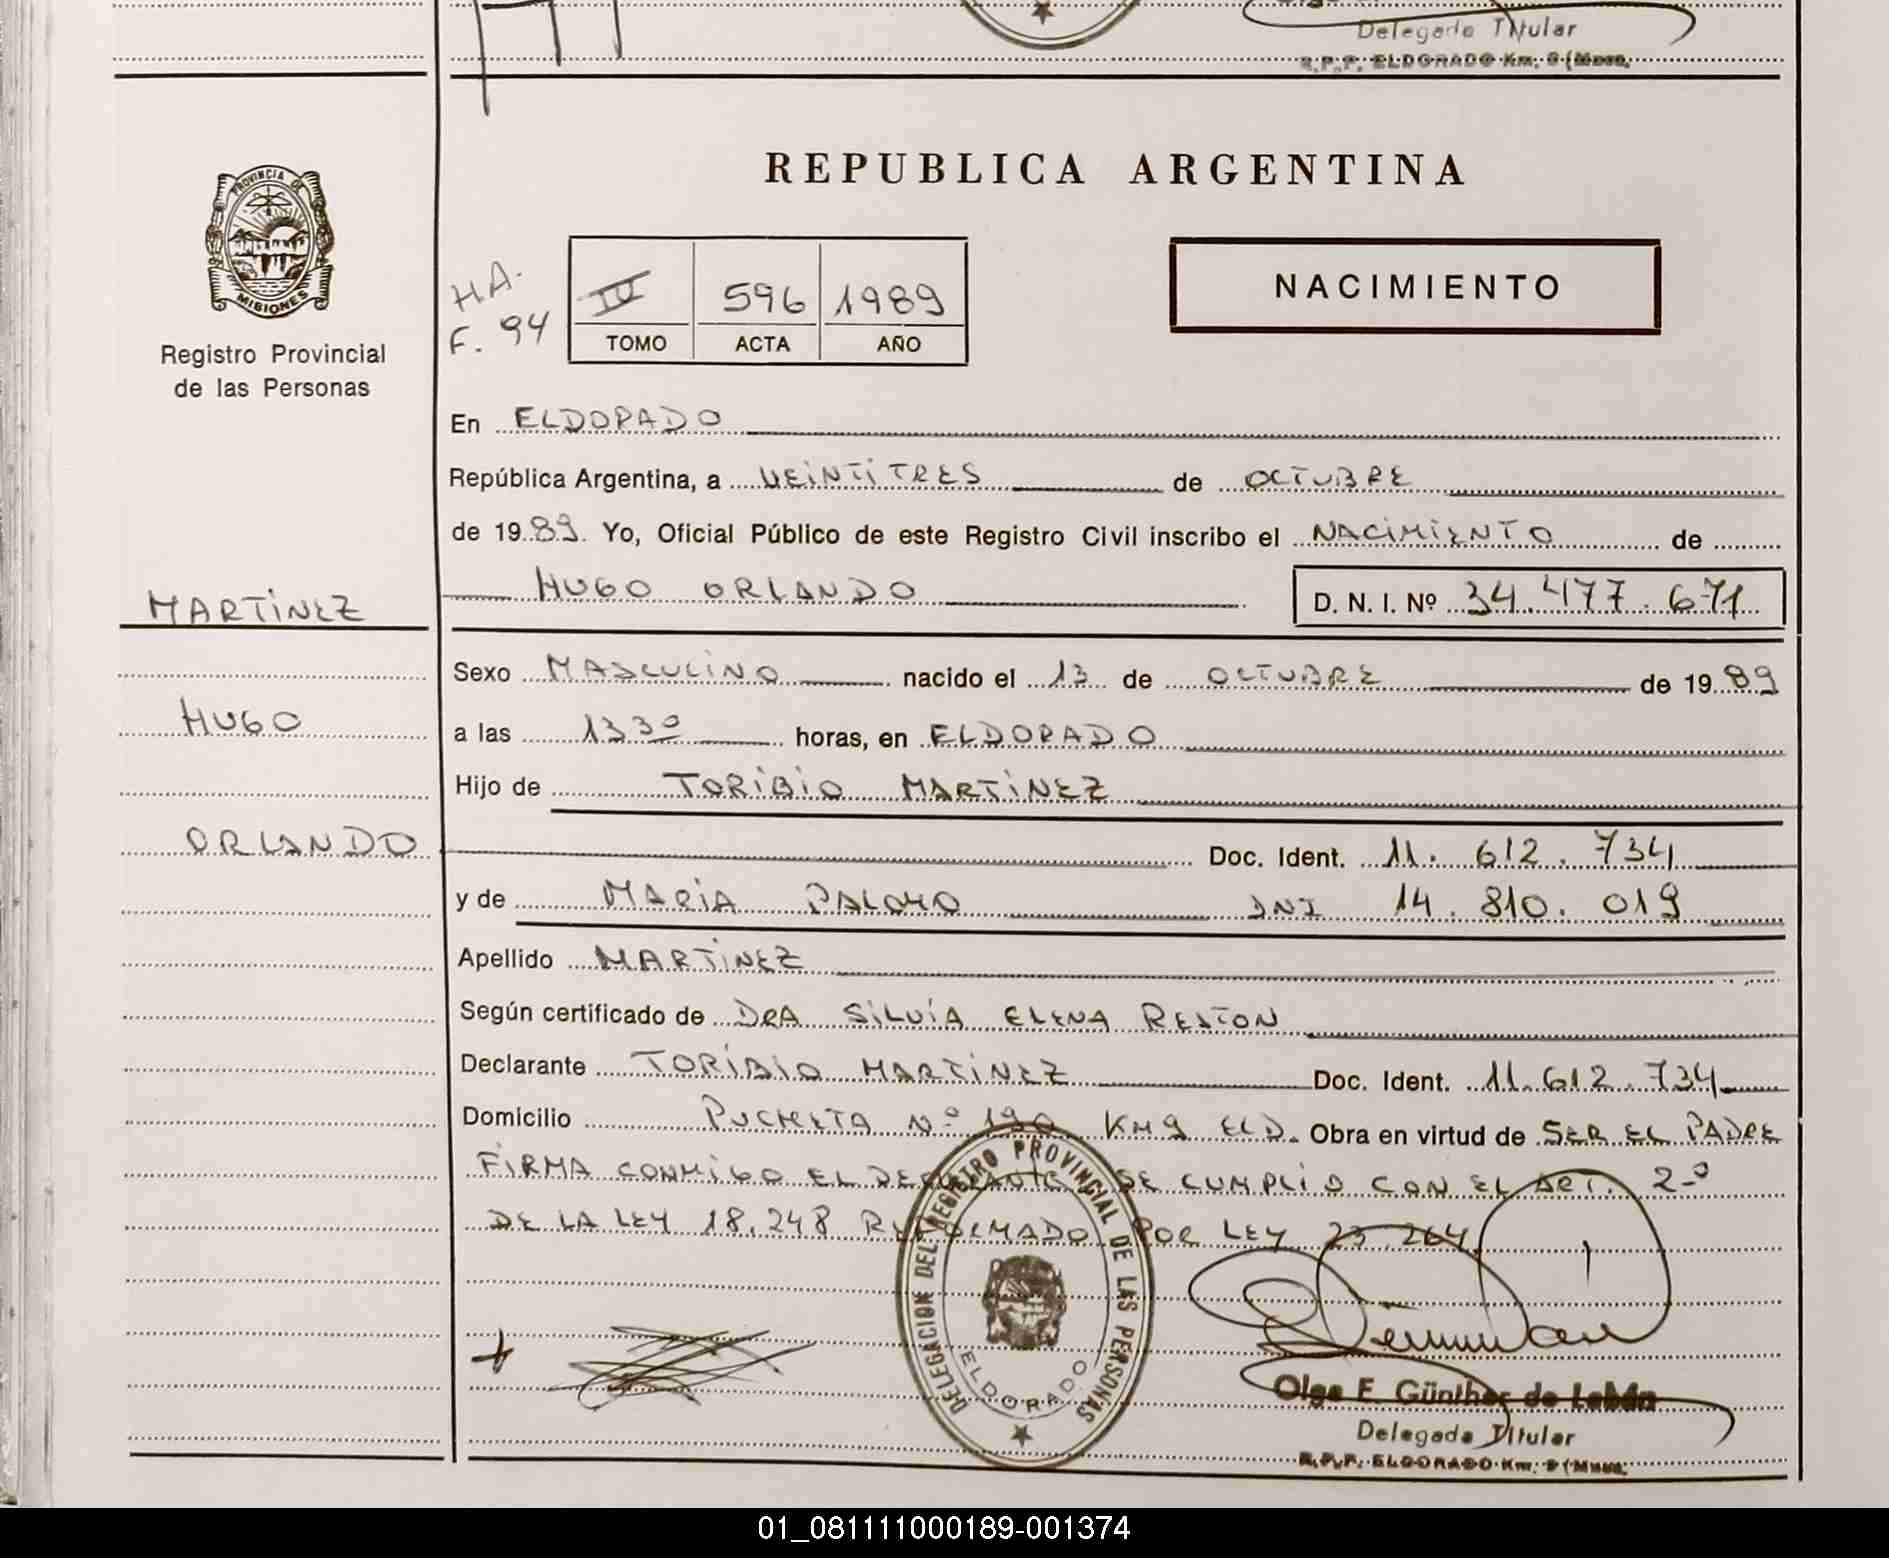 Delegada Titular
R.P.P. ELDORADO Km. 9 (Mnes.
PROVINCIA DE
MISIONES
Registro Provincial
de las Personas
REPUBLICA ARGENTINA
HA.
F. 94
IV 596 1989
TOMO ACTA AÑO
NACIMIENTO
En ELDORADO
República Argentina, a VEINTITRES de OCTUBRE
de 1989 Yo, Oficial Público de este Registro Civil inscribo el NACIMIENTO de
HUGO ORLANDO D. N. I. Nº 34.477.671
MARTINEZ
HUGO
ORLANDO
Sexo MASCULINO nacido el 13 de OCTUBRE de 1989
a las 13 30 horas, en ELDORADO
Hijo de TORIBIO MARTINEZ
Doc. Ident. 11.612.734
y de MARIA PALOMO DNI 14.810.019
Apellido MARTINEZ
Según certificado de DRA SILVIA ELENA RESTON
Declarante TORIBIO MARTINEZ Doc. Ident. 11.612.734
Domicilio PUCHETA Nº 190 KM 9 ELD. Obra en virtud de SER EL PADRE
FIRMA CONMIGO EL DECLARANTE SE CUMPLIO CON EL ART. 2º
DE LA LEY 18.248 REFORMADO POR LEY 23.264
DELEGACION DEL REGISTRO PROVINCIAL DE LAS PERSONAS
ELDORADO
Olga E. Günther de Lebán
Delegada Titular
R.P.P. ELDORADO Km. 9 (Mnes.
01_081111000189-001374